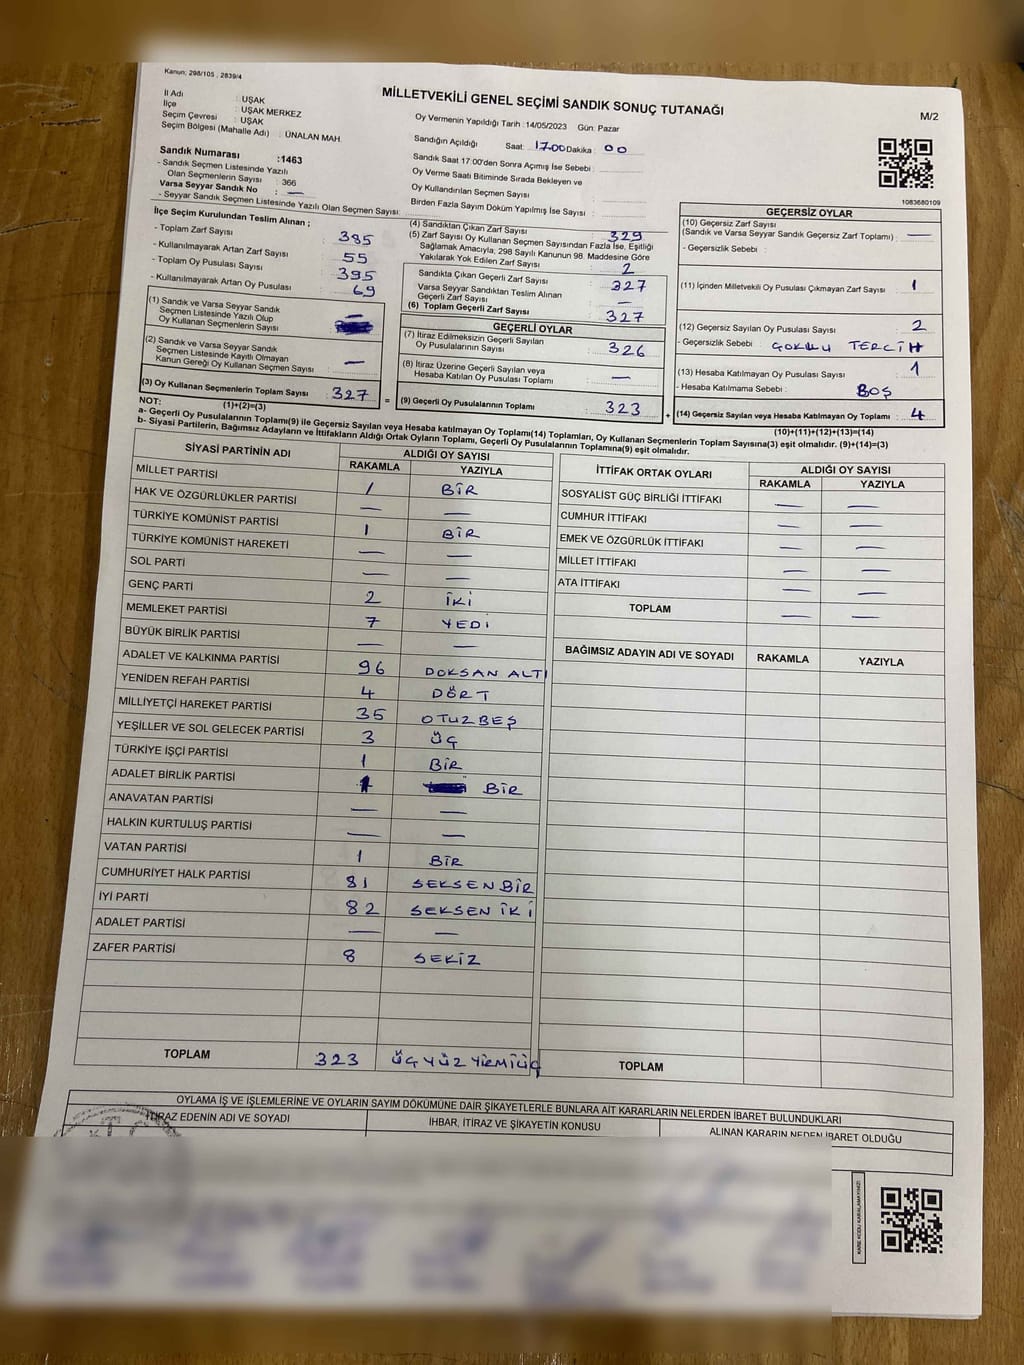 Kanun; 298/105 , 2839/4
MİLLETVEKİLİ GENEL SEÇİMİ SANDIK SONUÇ TUTANAĞI
M/2
İl Adı : UŞAK
İlçe : UŞAK MERKEZ
Seçim Çevresi : UŞAK
Seçim Bölgesi (Mahalle Adı) : ÜNALAN MAH.
Sandık Numarası :1463
- Sandık Seçmen Listesinde Yazılı
Olan Seçmenlerin Sayısı : 366
Varsa Seyyar Sandık No : —
- Seyyar Sandık Seçmen Listesinde Yazılı Olan Seçmen Sayısı:
Oy Vermenin Yapıldığı Tarih : 14/05/2023 Gün: Pazar
Sandığın Açıldığı Saat: 17.00 Dakika : 00
Sandık Saat 17:00'den Sonra Açımış İse Sebebi :
Oy Verme Saati Bitiminde Sırada Bekleyen ve
Oy Kullandırılan Seçmen Sayısı :
Birden Fazla Sayım Döküm Yapılmış İse Sayısı :
1083680109
İlçe Seçim Kurulundan Teslim Alınan ;
- Toplam Zarf Sayısı : 385
- Kullanılmayarak Artan Zarf Sayısı : 55
- Toplam Oy Pusulası Sayısı : 395
- Kullanılmayarak Artan Oy Pusulası : 69
(1) Sandık ve Varsa Seyyar Sandık
Seçmen Listesinde Yazılı Olup
Oy Kullanan Seçmenlerin Sayısı : —
(2) Sandık ve Varsa Seyyar Sandık
Seçmen Listesinde Kayıtlı Olmayan
Kanun Gereği Oy Kullanan Seçmen Sayısı : —
(3) Oy Kullanan Seçmenlerin Toplam Sayısı : 327
(4) Sandıktan Çıkan Zarf Sayısı : 329
(5) Zarf Sayısı Oy Kullanan Seçmen Sayısından Fazla İse, Eşitliği
Sağlamak Amacıyla, 298 Sayılı Kanunun 98. Maddesine Göre
Yakılarak Yok Edilen Zarf Sayısı : 2
Sandıkta Çıkan Geçerli Zarf Sayısı : 327
Varsa Seyyar Sandıktan Teslim Alınan
Geçerli Zarf Sayısı : —
(6) Toplam Geçerli Zarf Sayısı : 327
GEÇERLİ OYLAR
(7) İtiraz Edilmeksizin Geçerli Sayılan
Oy Pusulalarının Sayısı : 326
(8) İtiraz Üzerine Geçerli Sayılan veya
Hesaba Katılan Oy Pusulası Toplamı : —
= (9) Geçerli Oy Pusulalarının Toplamı : 323 +
GEÇERSİZ OYLAR
(10) Geçersiz Zarf Sayısı
(Sandık ve Varsa Seyyar Sandık Geçersiz Zarf Toplamı) : —
- Geçersizlik Sebebi :
(11) İçinden Milletvekili Oy Pusulası Çıkmayan Zarf Sayısı : 1
(12) Geçersiz Sayılan Oy Pusulası Sayısı : 2
- Geçersizlik Sebebi : ÇOKLU TERCİH
(13) Hesaba Katılmayan Oy Pusulası Sayısı : 1
- Hesaba Katılmama Sebebi : BOŞ
(14) Geçersiz Sayılan veya Hesaba Katılmayan Oy Toplamı : 4
NOT: (1)+(2)=(3)
(10)+(11)+(12)+(13)=(14)
a- Geçerli Oy Pusulalarının Toplamı(9) ile Geçersiz Sayılan veya Hesaba katılmayan Oy Toplamı(14) Toplamları, Oy Kullanan Seçmenlerin Toplam Sayısına(3) eşit olmalıdır. (9)+(14)=(3)
b- Siyasi Partilerin, Bağımsız Adayların ve İttifakların Aldığı Ortak Oyların Toplamı, Geçerli Oy Pusulalarının Toplamına(9) eşit olmalıdır.
SİYASİ PARTİNİN ADI ALDIĞI OY SAYISI
RAKAMLA YAZIYLA
MİLLET PARTİSİ 1 BİR
HAK VE ÖZGÜRLÜKLER PARTİSİ — —
TÜRKİYE KOMÜNİST PARTİSİ 1 BİR
TÜRKİYE KOMÜNİST HAREKETİ — —
SOL PARTİ — —
GENÇ PARTİ 2 İKİ
MEMLEKET PARTİSİ 7 YEDİ
BÜYÜK BİRLİK PARTİSİ — —
ADALET VE KALKINMA PARTİSİ 96 DOKSAN ALTI
YENİDEN REFAH PARTİSİ 4 DÖRT
MİLLİYETÇİ HAREKET PARTİSİ 35 OTUZBEŞ
YEŞİLLER VE SOL GELECEK PARTİSİ 3 ÜÇ
TÜRKİYE İŞÇİ PARTİSİ 1 BİR
ADALET BİRLİK PARTİSİ 1 BİR
ANAVATAN PARTİSİ — —
HALKIN KURTULUŞ PARTİSİ — —
VATAN PARTİSİ 1 BİR
CUMHURİYET HALK PARTİSİ 81 SEKSENBİR
İYİ PARTİ 82 SEKSEN İKİ
ADALET PARTİSİ — —
ZAFER PARTİSİ 8 SEKİZ
TOPLAM 323 ÜÇ YÜZ YİRMİÜÇ
İTTİFAK ORTAK OYLARI ALDIĞI OY SAYISI
RAKAMLA YAZIYLA
SOSYALİST GÜÇ BİRLİĞİ İTTİFAKI — —
CUMHUR İTTİFAKI — —
EMEK VE ÖZGÜRLÜK İTTİFAKI — —
MİLLET İTTİFAKI — —
ATA İTTİFAKI — —
TOPLAM — —
BAĞIMSIZ ADAYIN ADI VE SOYADI RAKAMLA YAZIYLA
TOPLAM
OYLAMA İŞ VE İŞLEMLERİNE VE OYLARIN SAYIM DÖKÜMÜNE DAİR ŞİKAYETLERLE BUNLARA AİT KARARLARIN NELERDEN İBARET BULUNDUKLARI
İTİRAZ EDENİN ADI VE SOYADI İHBAR, İTİRAZ VE ŞİKAYETİN KONUSU ALINAN KARARIN NEDEN İBARET OLDUĞU
KARE KODU KARALAMAYINIZ!